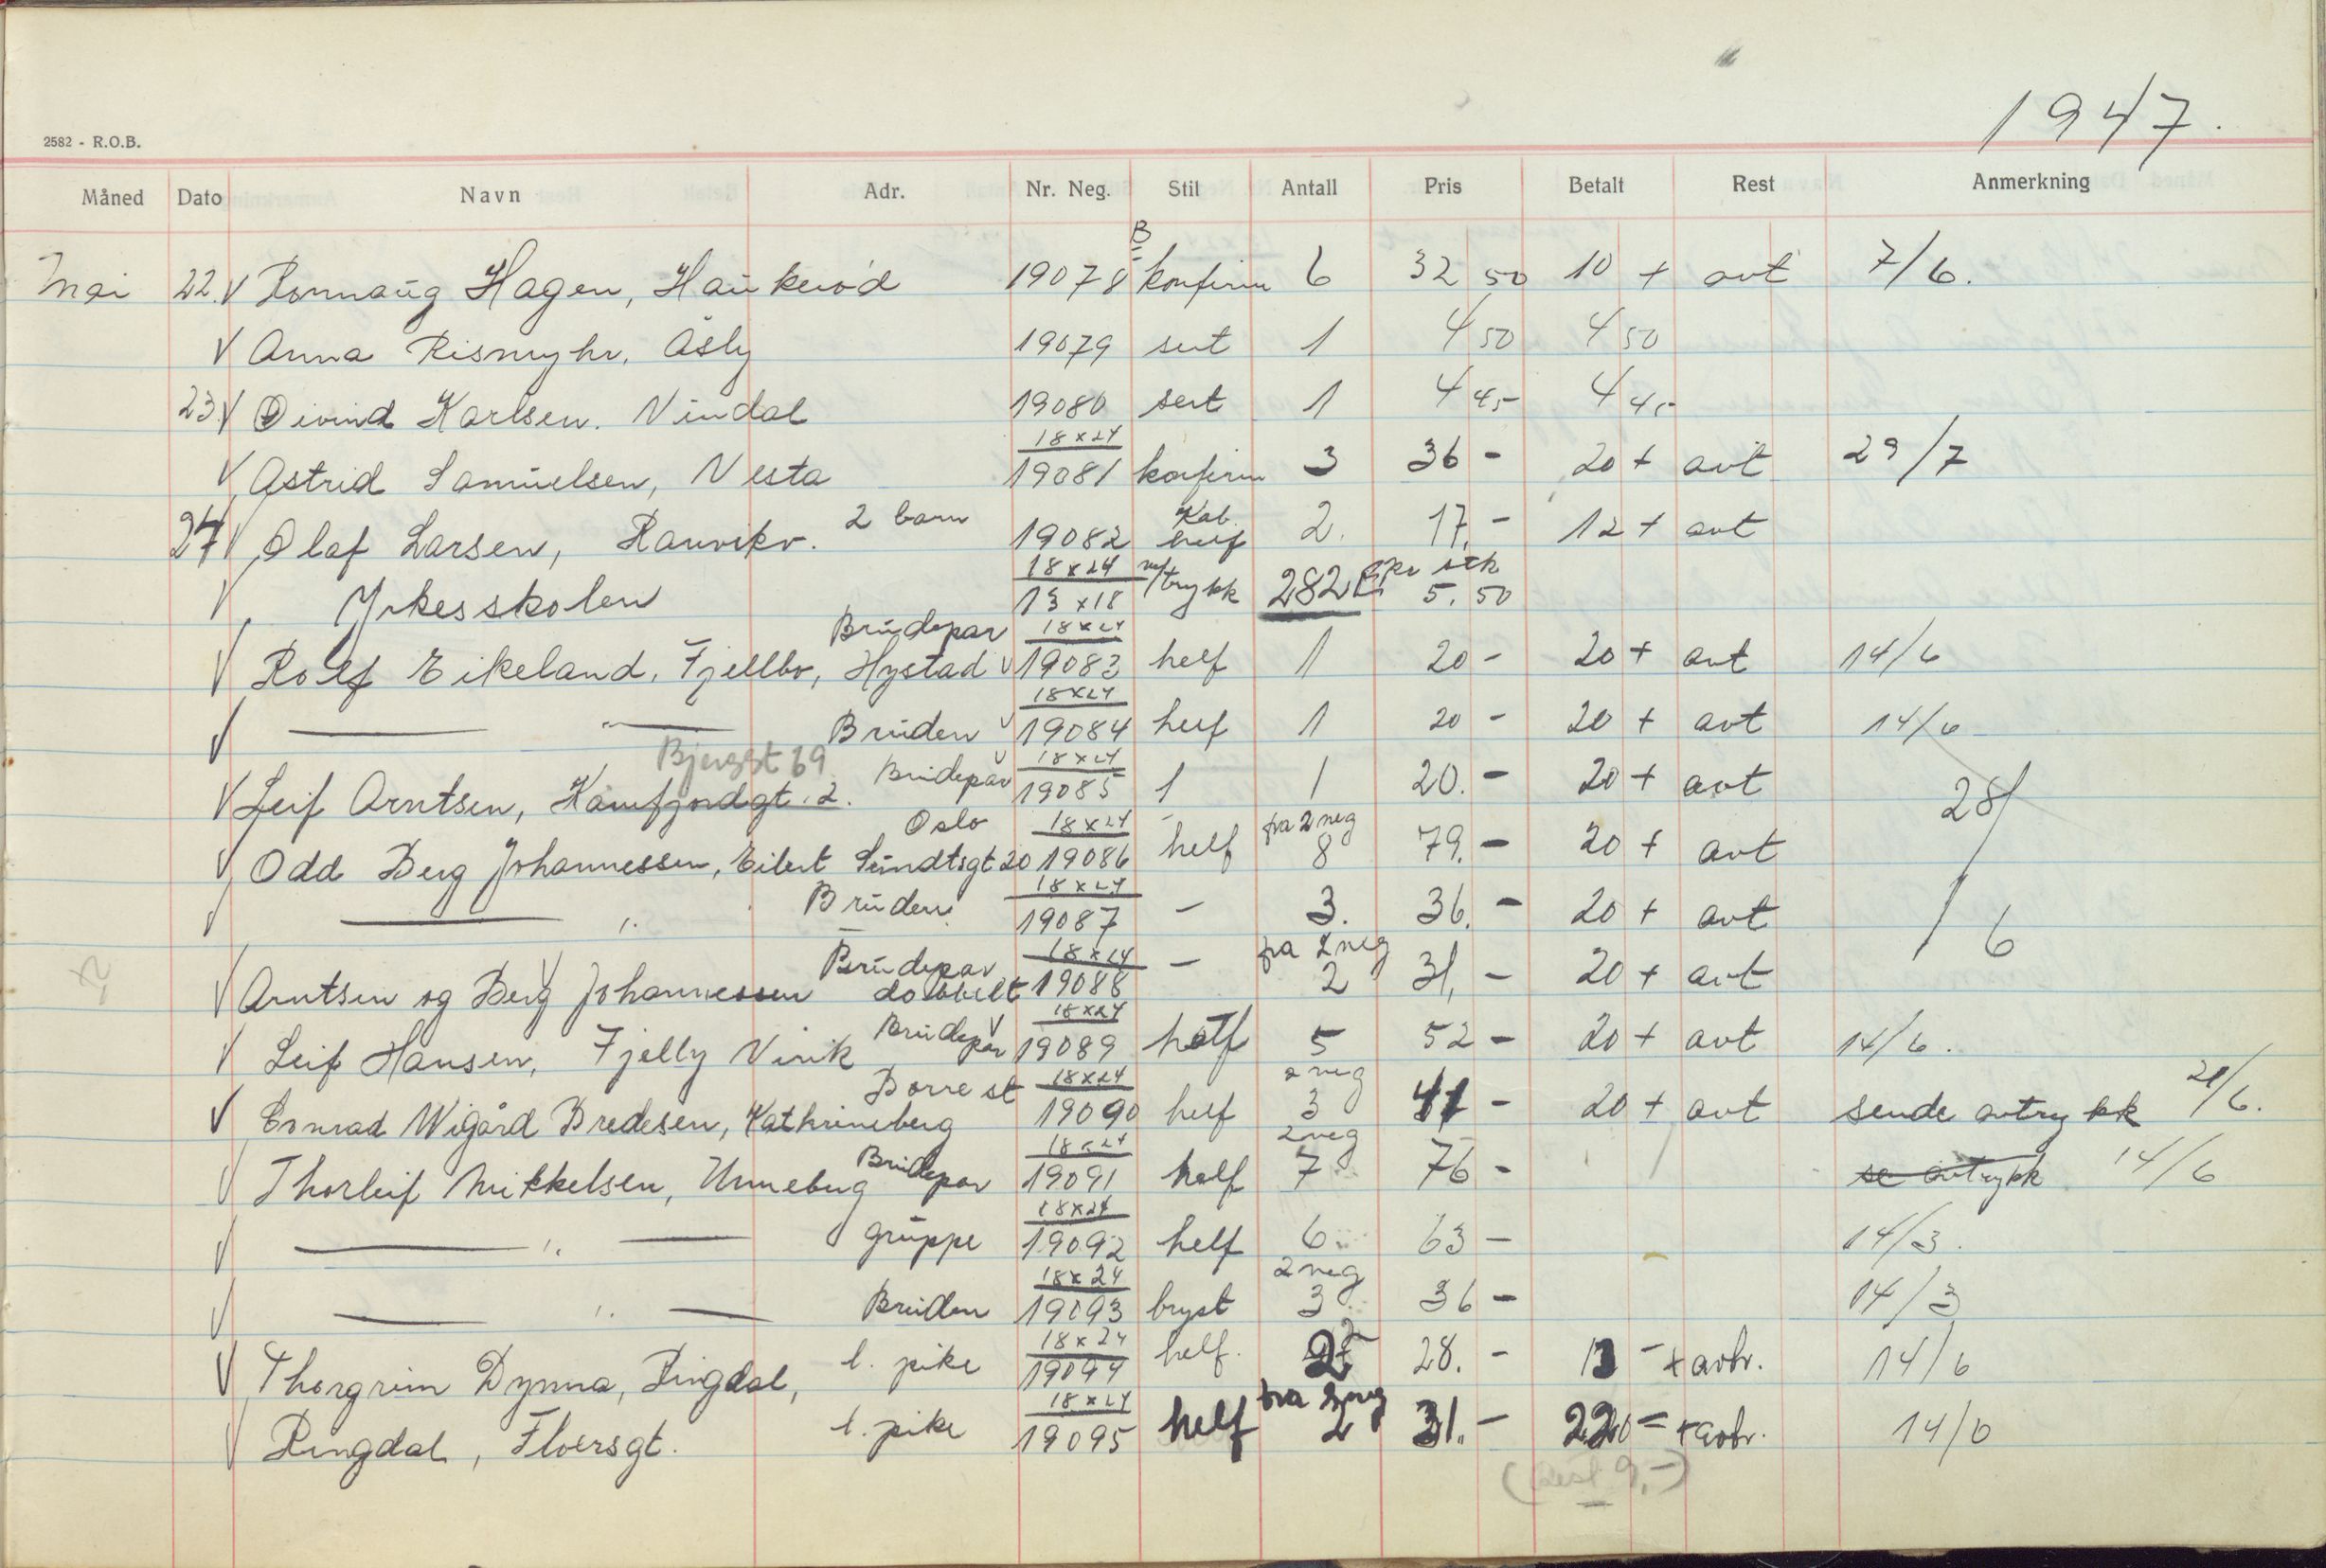 1947.
2582 - R.O.B.
Måned Dato Navn Adr. Nr. Neg. Stil Antall Pris Betalt Rest Anmerkning
B
Mai 22. V Ronnaug Hagen, Haukerød 19078 konfirm 6 32 50 10 + avt 7/6.
V Anna Rismyhr, Åsly 19079 sert 1 4 50 4 50
23 V Øivind Karlsen. Vindal 19080 sert 1 4 45 4 45
18x24
V Astrid Samuelsen, Vesta 19081 konfirm 3 36 - 20 + avt 29/7
2 barn Kab.
24 V Olaf Larsen, Ranvikv. 19082 helf 2. 17. - 12 + avt
18x24 pr stk
V Yrkesskolen 13x18 trykk 282 5.50
Brudepar 18x24
V Rolf Eikeland, Fjellbo, Hystad V 19083 helf 1 20 - 20 + avt 14/6
18x24
V — " — Bruden V 19084 helf 1 20 - 20 + avt 14/6
Bjergst 69 V 18x24
V Leif Arntsen, Kamfjordgt. 2. Brudepar 19085 1 1 20. - 20 + avt
Oslo 18x24 fra 2 neg 28/6
V Odd Berg Johannessen, Eilert Sundtsgt 20 19086 helf 8 79. - 20 + avt
18x24
V — " Bruden 19087 - 3. 36. - 20 + avt
Brudepar 18x24 fra 2 neg
V Arntsen og Berg Johannessen dobbelt 19088 - 2 31, - 20 + avt
Brudepar V 18x24
V Leif Hansen, Fjelly Virik 19089 helf 5 52 - 20 + avt 14/6.
Borre st 18x24 2 neg
V Conrad Wigård Bredesen, Kathrineberg 19090 helf 3 41 - 20 + avt sende avtrykk 21/6.
18x24 2 neg
V Thorleif Mikkelsen, Unneberg Brudepar 19091 helf 7 76 - se avtrykk 14/6
18x24
V — " — gruppe 19092 helf 6 63 - 14/3.
18x24 2 neg
V — " — Bruden 19093 bryst 3 36 - 14/3
18x24
V Thorgrim Dynna, Ringdal, l. pike 19094 helf. 2 28. - 13 - + avbr. 14/6
18x24 fra 2 neg
V Ringdal, Floersgt. l. pike 19095 helf 2 31. - 22 - + avbr. 14/6
(Rest 9,-)